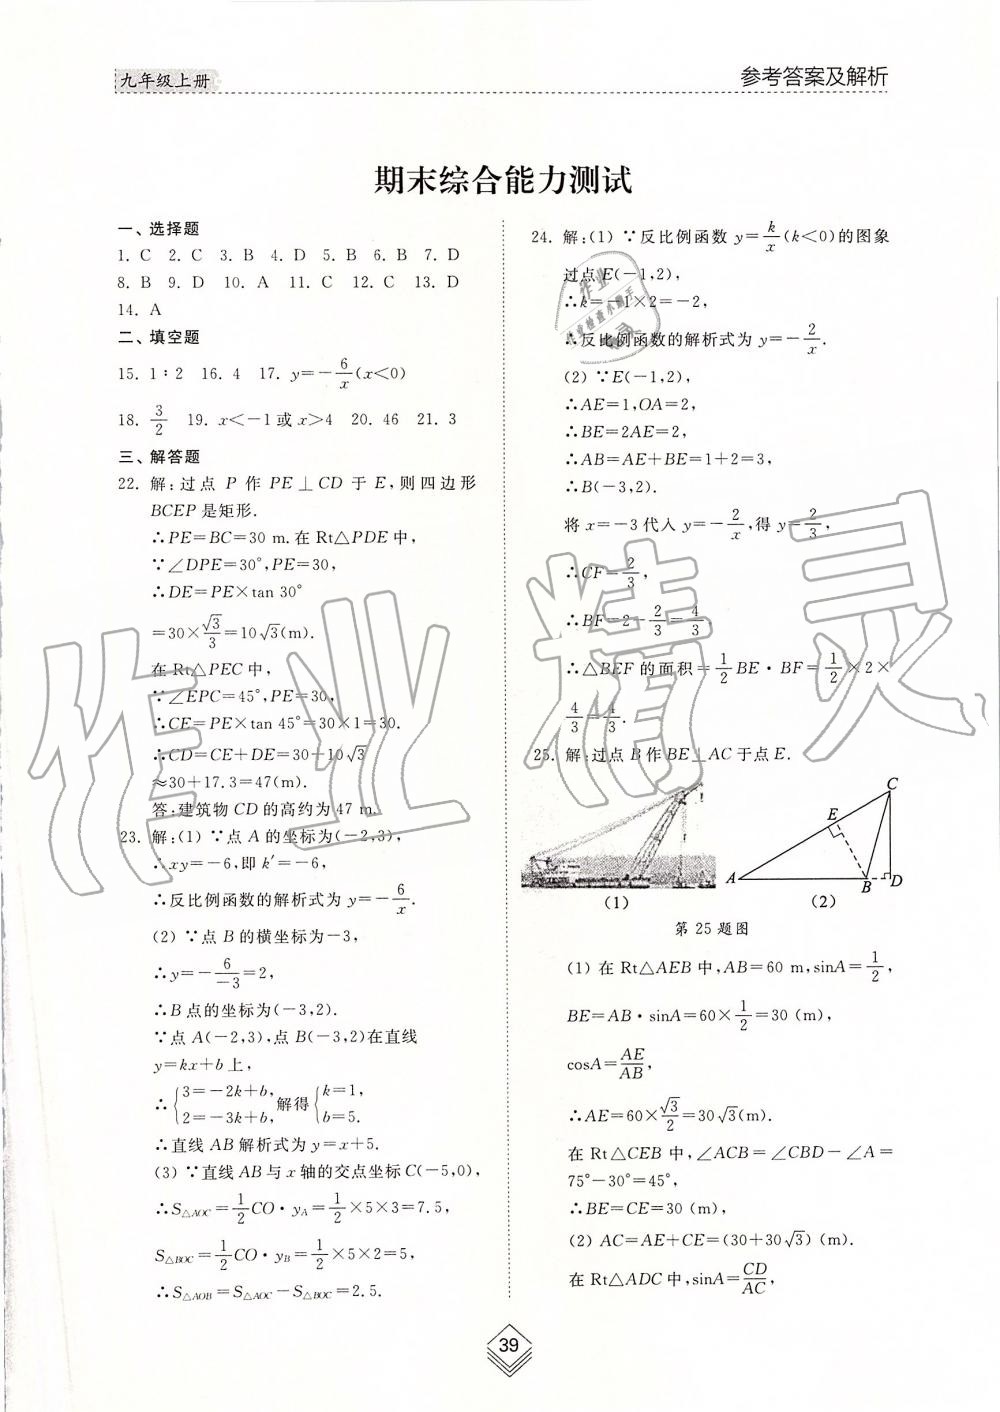 九年级上册
参考答案及解析
期末综合能力测试
一、选择题
1. C 2. C 3. B 4. D 5. B 6. B 7. D
8. B 9. D 10. A 11. C 12. C 13. D
14. A
二、填空题
15. 1∶2 16. 4 17. y=-6/x(x<0)
18. 3/2 19. x<-1或x>4 20. 46 21. 3
三、解答题
22. 解:过点 P 作 PE⊥CD 于 E,则四边形
BCEP 是矩形.
∴PE=BC=30 m.在 Rt△PDE 中,
∵∠DPE=30°,PE=30,
∴DE=PE×tan 30°
=30×√3/3=10√3(m).
在 Rt△PEC 中,
∵∠EPC=45°,PE=30,
∴CE=PE×tan 45°=30×1=30.
∴CD=CE+DE=30+10√3
≈30+17.3=47(m).
答:建筑物 CD 的高约为 47 m.
23. 解:(1) ∵点 A 的坐标为(-2,3),
∴xy=-6,即 k′=-6,
∴反比例函数的解析式为 y=-6/x.
(2) ∵点 B 的横坐标为-3,
∴y=-6/-3=2,
∴B 点的坐标为(-3,2).
∵点 A(-2,3),点 B(-3,2)在直线
y=kx+b 上,
∴{3=-2k+b, 2=-3k+b, 解得{k=1, b=5.
∴直线 AB 解析式为 y=x+5.
(3) ∵直线 AB 与 x 轴的交点坐标 C(-5,0),
∴S△AOC=1/2CO·yA=1/2×5×3=7.5,
S△BOC=1/2CO·yB=1/2×5×2=5,
∴S△AOB=S△AOC-S△BOC=2.5.
24. 解:(1) ∵反比例函数 y=k/x(k<0)的图象
过点 E(-1,2),
∴k=-1×2=-2,
∴反比例函数的解析式为 y=-2/x.
(2) ∵E(-1,2),
∴AE=1,OA=2,
∴BE=2AE=2,
∴AB=AE+BE=1+2=3,
∴B(-3,2).
将 x=-3 代入 y=-2/x,得 y=2/3,
∴CF=2/3,
∴BF=2-2/3=4/3.
∴△BEF 的面积=1/2BE·BF=1/2×2×
4/3=4/3.
25. 解:过点 B 作 BE⊥AC 于点 E.
A B C D E
(1) (2)
第 25 题图
(1) 在 Rt△AEB 中,AB=60 m,sinA=1/2,
BE=AB·sinA=60×1/2=30 (m),
cosA=AE/AB,
∴AE=60×√3/2=30√3(m).
在 Rt△CEB 中,∠ACB=∠CBD-∠A=
75°-30°=45°,
∴BE=CE=30 (m).
(2) AC=AE+CE=(30+30√3) (m).
在 Rt△ADC 中,sinA=CD/AC,
39
作业精灵